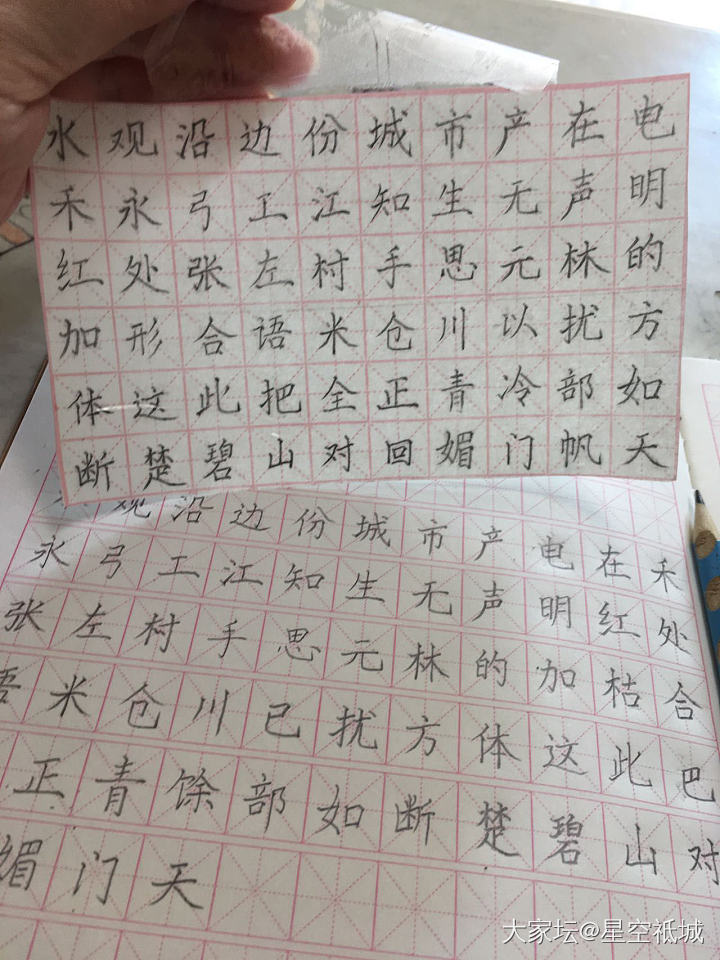 水观沿边份城市产在电
禾永弓工江知生无声明
红处张左村手思元林的
加形合语米仓川以扰方
体这此把全正青冷部如
断楚碧山对回媚门帆天
观沿边份城市产电在禾
永弓工江知生无声明红处
张左村手思元林的加枯合
语米仓川已扰方体这此巴
正青馀部如断楚碧山对
媚门天
大家坛@星空祗城